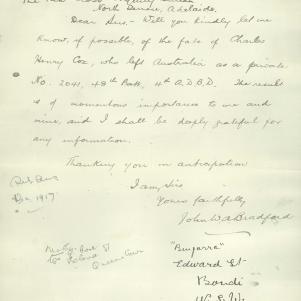 North Terrace, Adelaide.
Dear Sirs,- Will you kindly let me
know, if possible, of the fate of Charles
Henry Cox, who left Australia as a private
No. 2041, 48th Batt, 4th A.D.B.D. The result
is of momentous importance to me and
mine, and I shall be deeply grateful for
any information.
Thanking you in anticipation
I am, Sirs
Yours faithfully
John W. A. Bradford
1917
"
Edward St
Bondi
N.S.W.